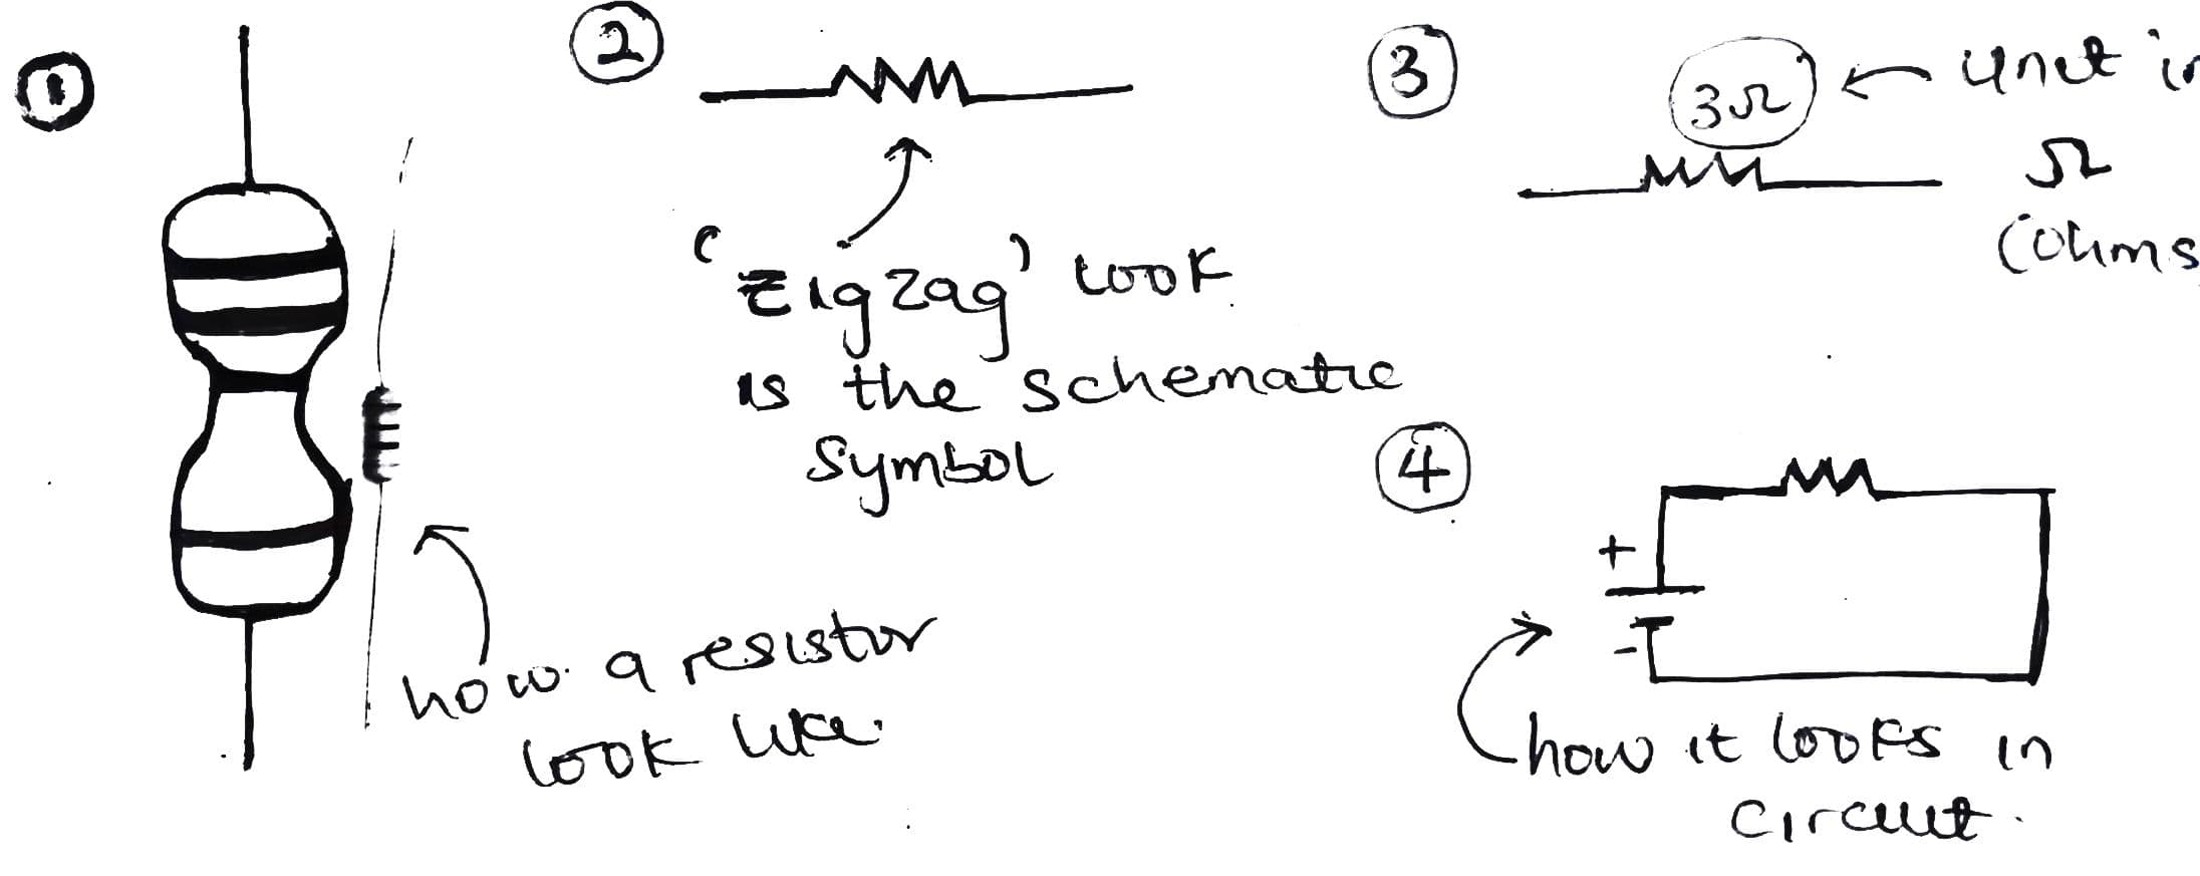 1
how a resistor
look like.
2
'Zigzag' look
is the schematic
symbol
3
3Ω ← unit in
Ω
(ohms
4
+
-
how it looks in
circuit.